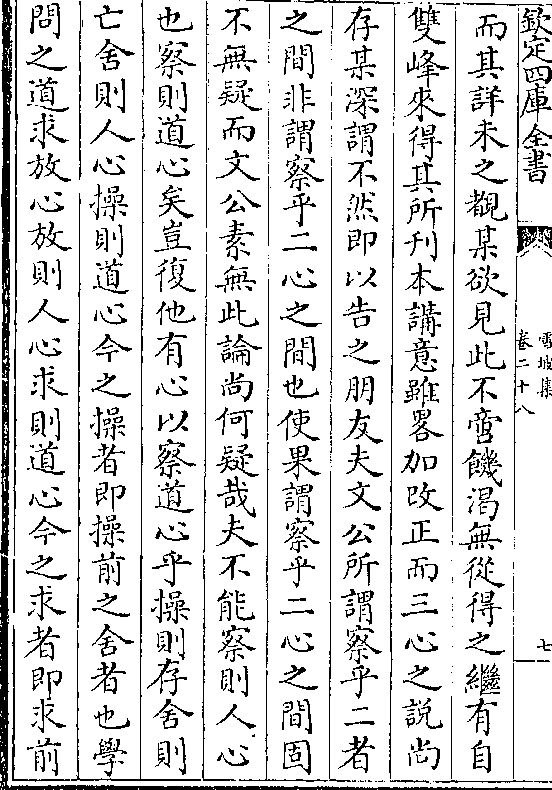 欽定四庫全書
雪坡集
卷二十八
七
而其詳未之覩某欲見此不啻饑渴無從得之繼有自
雙峰來得其所刋本講意雖畧加改正而三心之說尚
存某深謂不然即以告之朋友夫文公所謂察乎二者
之間非謂察乎二心之間也使果謂察乎二心之間固
不無疑而文公素無此論尚何疑哉夫不能察則人心
也察則道心矣豈復他有心以察道心乎操則存舍則
亡舍則人心操則道心今之操者即操前之舍者也學
問之道求放心放則人心求則道心今之求者即求前